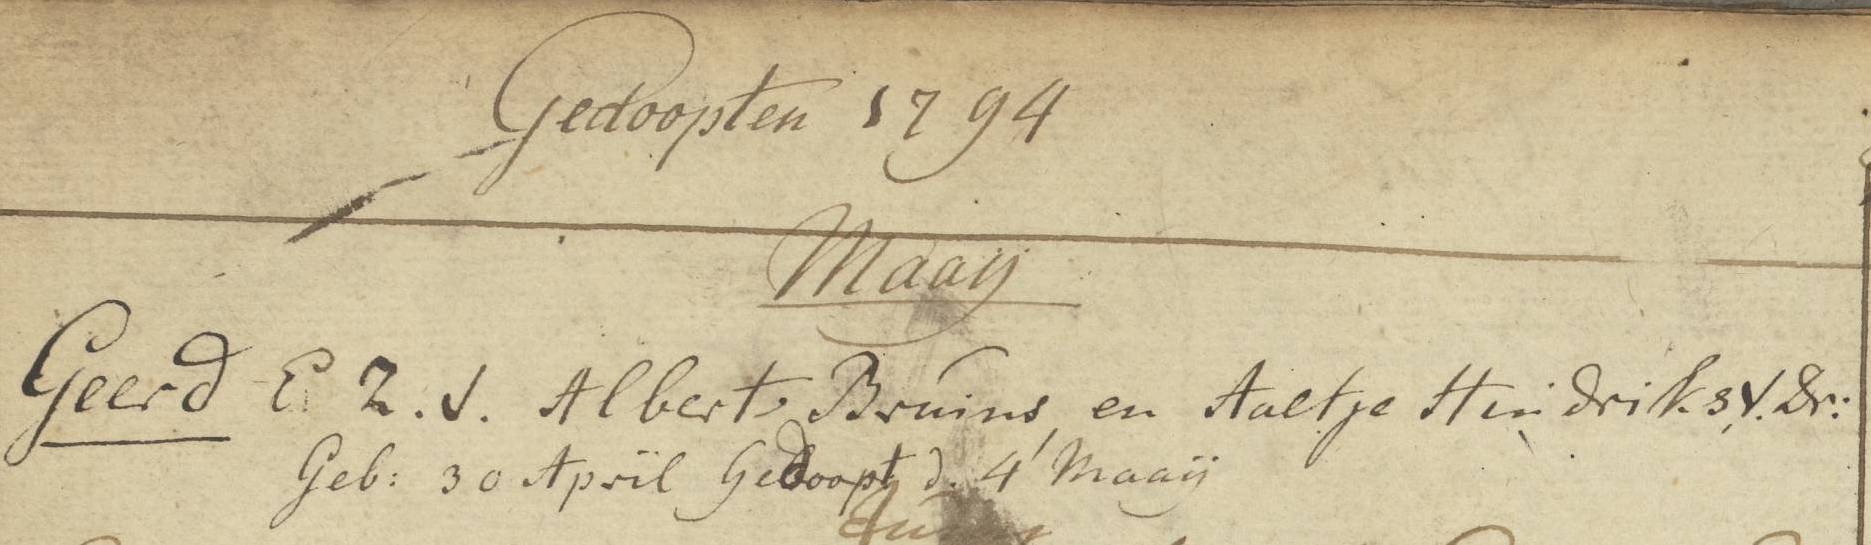 Gedoopten 1794
Maaij
Geerd E Z. v. Albert Bruins en Aaltje Hindriks v. Dr:
Geb: 30 April Gedoopt d. 4 Maaij